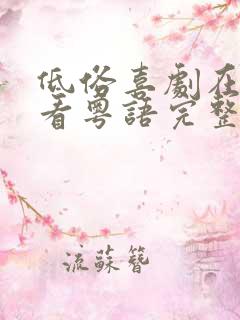 低俗喜劇在
看粵語完整
流蘇簪